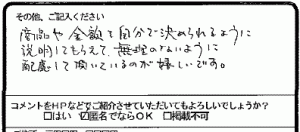 その他、ご記入ください
商品や金額も自分で決められるように
説明してもらえて、無理のないように
配慮して頂いているのが嬉しいです。
コメントをHPなどでご紹介させていただいてもよろしいでしょうか?
□はい ☑匿名でならOK □掲載不可